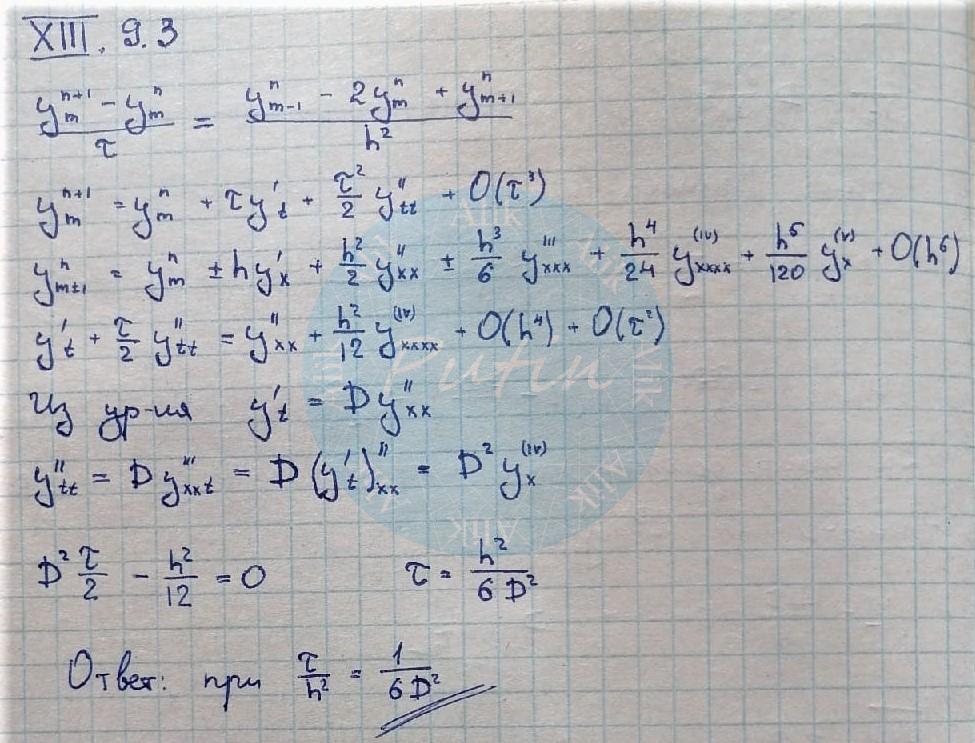 XIII. 9.3
(yₘⁿ⁺¹ - yₘⁿ)/τ = (yₘ₋₁ⁿ - 2yₘⁿ + yₘ₊₁ⁿ)/h²
yₘⁿ⁺¹ = yₘⁿ + τy'ₜ + τ²/2 y''ₜₜ + O(τ³)
yₘ±₁ⁿ = yₘⁿ ± hy'ₓ + h²/2 y''ₓₓ ± h³/6 y'''ₓₓₓ + h⁴/24 y⁽ᴵⱽ⁾ₓₓₓₓ + h⁵/120 y⁽ⱽ⁾ₓ + O(h⁶)
y'ₜ + τ/2 y''ₜₜ = y''ₓₓ + h²/12 y⁽ᴵⱽ⁾ₓₓₓₓ + O(h⁴) + O(τ²)
Putin
Из ур-ия y'ₜ = D y''ₓₓ
y''ₜₜ = D y'''ₓₓₜ = D (y'ₜ)''ₓₓ = D² y⁽ᴵⱽ⁾ₓ
D² τ/2 - h²/12 = 0 τ = h²/(6 D²)
Ответ: при τ/h² = 1/(6 D²)